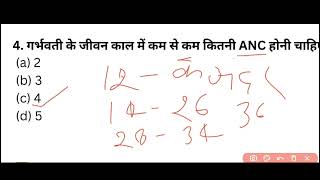 4. गर्भवती के जीवन काल में कम से कम कितनी ANC होनी चाहि
(a) 2
(b) 3
(c) 4
(d) 5
12 - के अन्दर
14 - 26
36
28 - 34